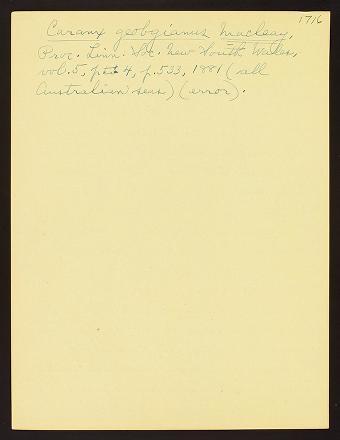 1716
Caranx geobgianus Macleay,
Proc. Linn. Soc. New South Wales,
vol. 5, pt 4, p. 533, 1881 (all
Australian seas) (error).